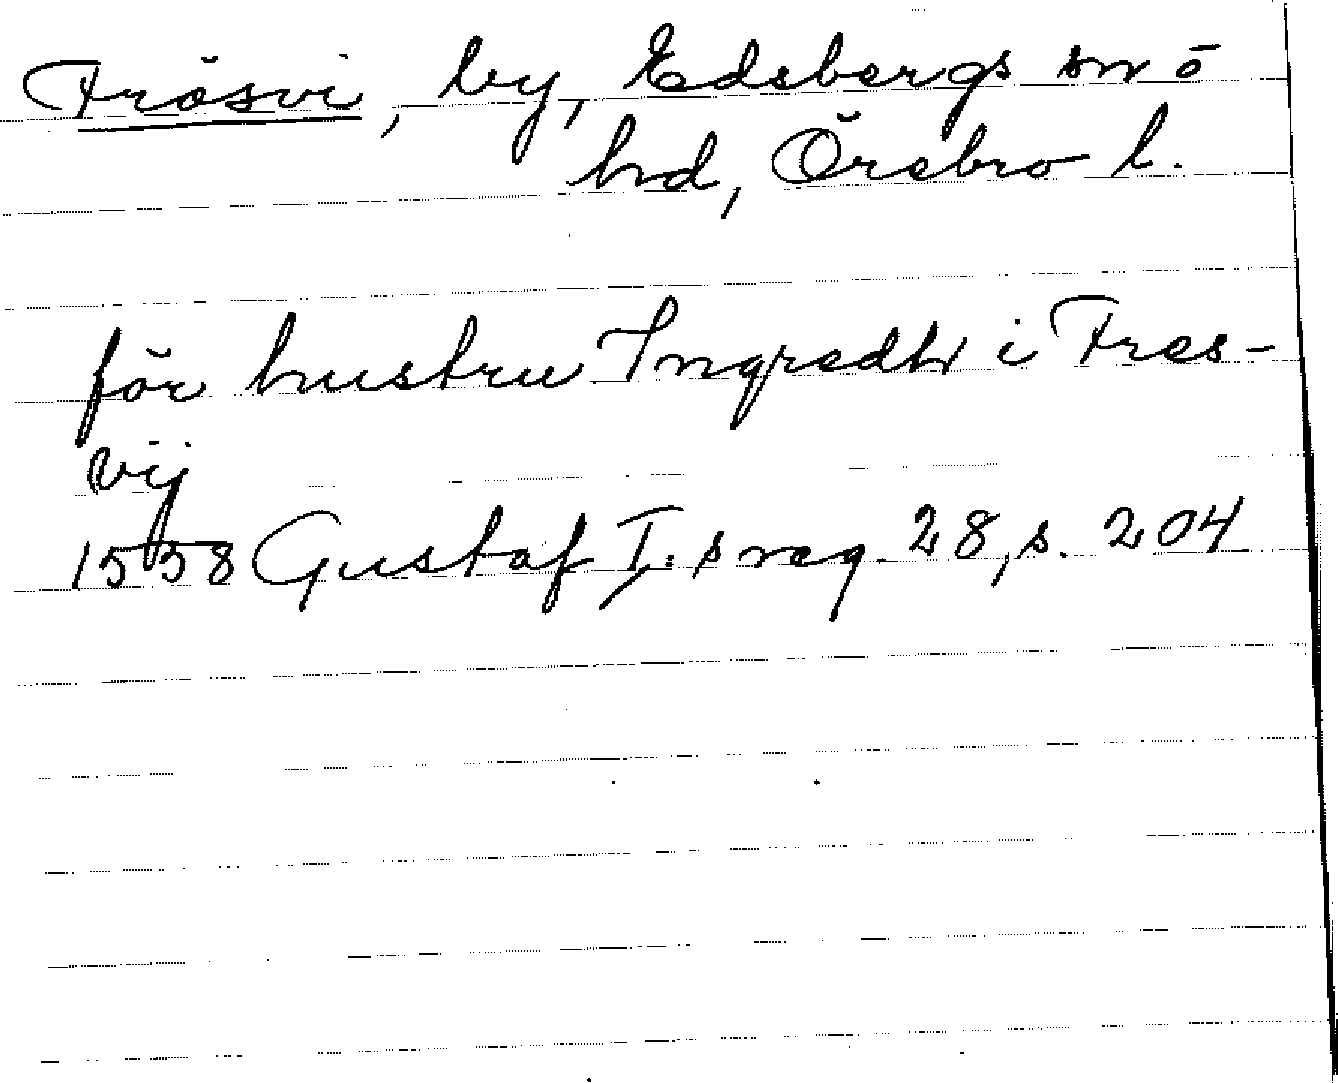 Frösvi, by, Edsbergs sn o
hd, Örebro l.
för hustru Ingredh i Fres-
vij
1558 Gustaf I:s reg. 28, s. 204